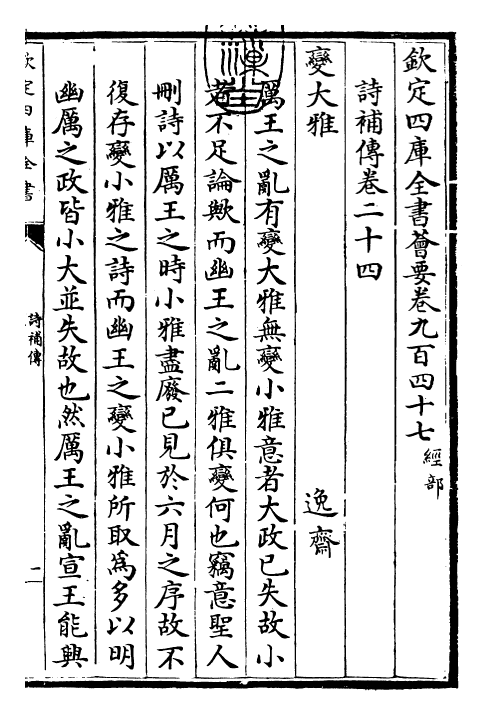 欽定四庫全書薈要卷九百四十七 經部
詩補傳卷二十四
逸齋
變大雅
厲王之亂有變大雅無變小雅意者大政已失故小
者不足論歟而幽王之亂二雅俱變何也竊意聖人
刪詩以厲王之時小雅盡廢已見於六月之序故不
復存變小雅之詩而幽王之變小雅所取為多以明
幽厲之政皆小大並失故也然厲王之亂宣王能興
欽定四庫全書
詩補傳